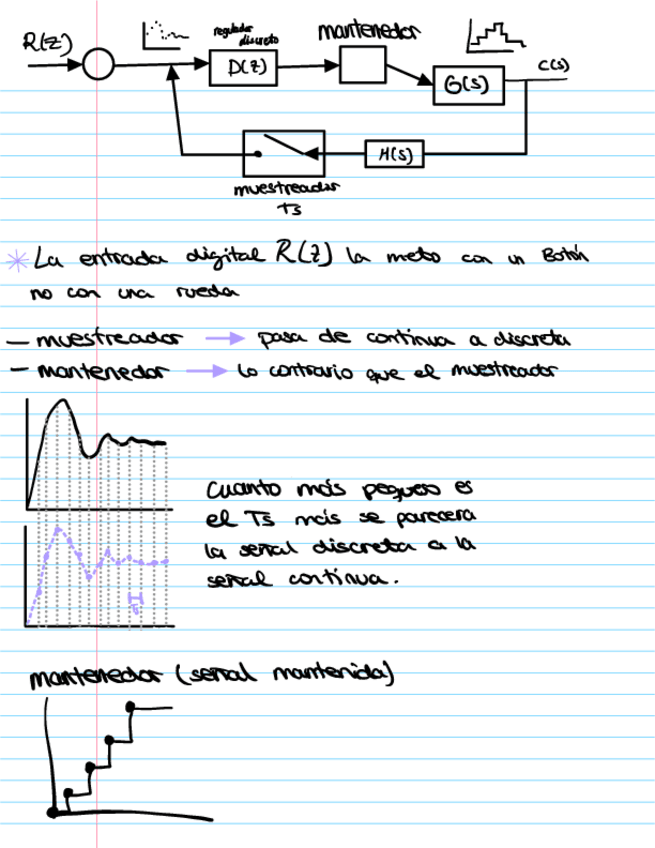 R(z)
regulador
discreto
mantenedor
D(z)
G(s)
C(s)
H(s)
muestreador
Ts
* La entrada digital R(z) la meto con un Botón
no con una rueda
— muestreador → pasa de continua a discreta
— mantenedor → lo contrario que el muestreador
Cuanto más pequeño es
el Ts más se parecera
la señal discreta a la
señal continua.
Ts
mantenedor (señal mantenida)